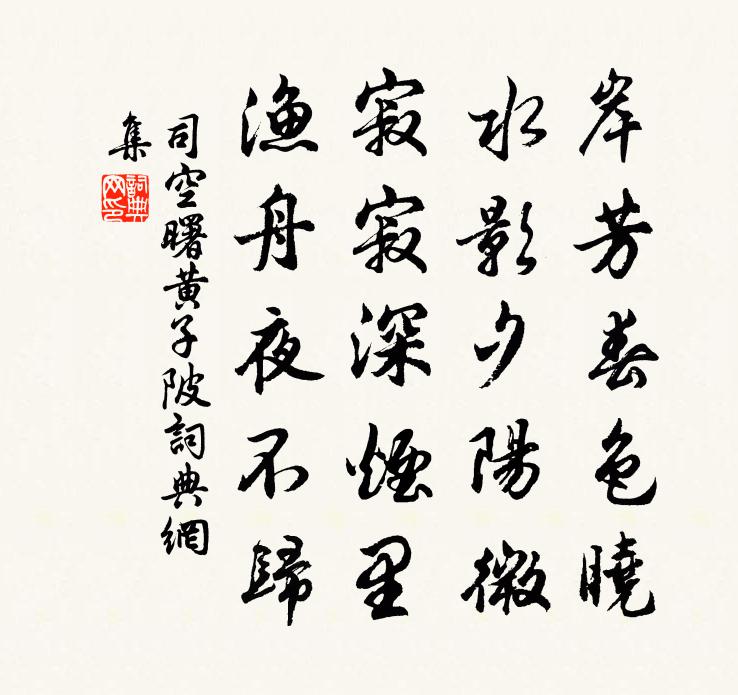 岸芳春色曉
水影夕陽微
寂寂深煙里
漁舟夜不歸
司空曙黃子陂詞典網
集
詞典
网印